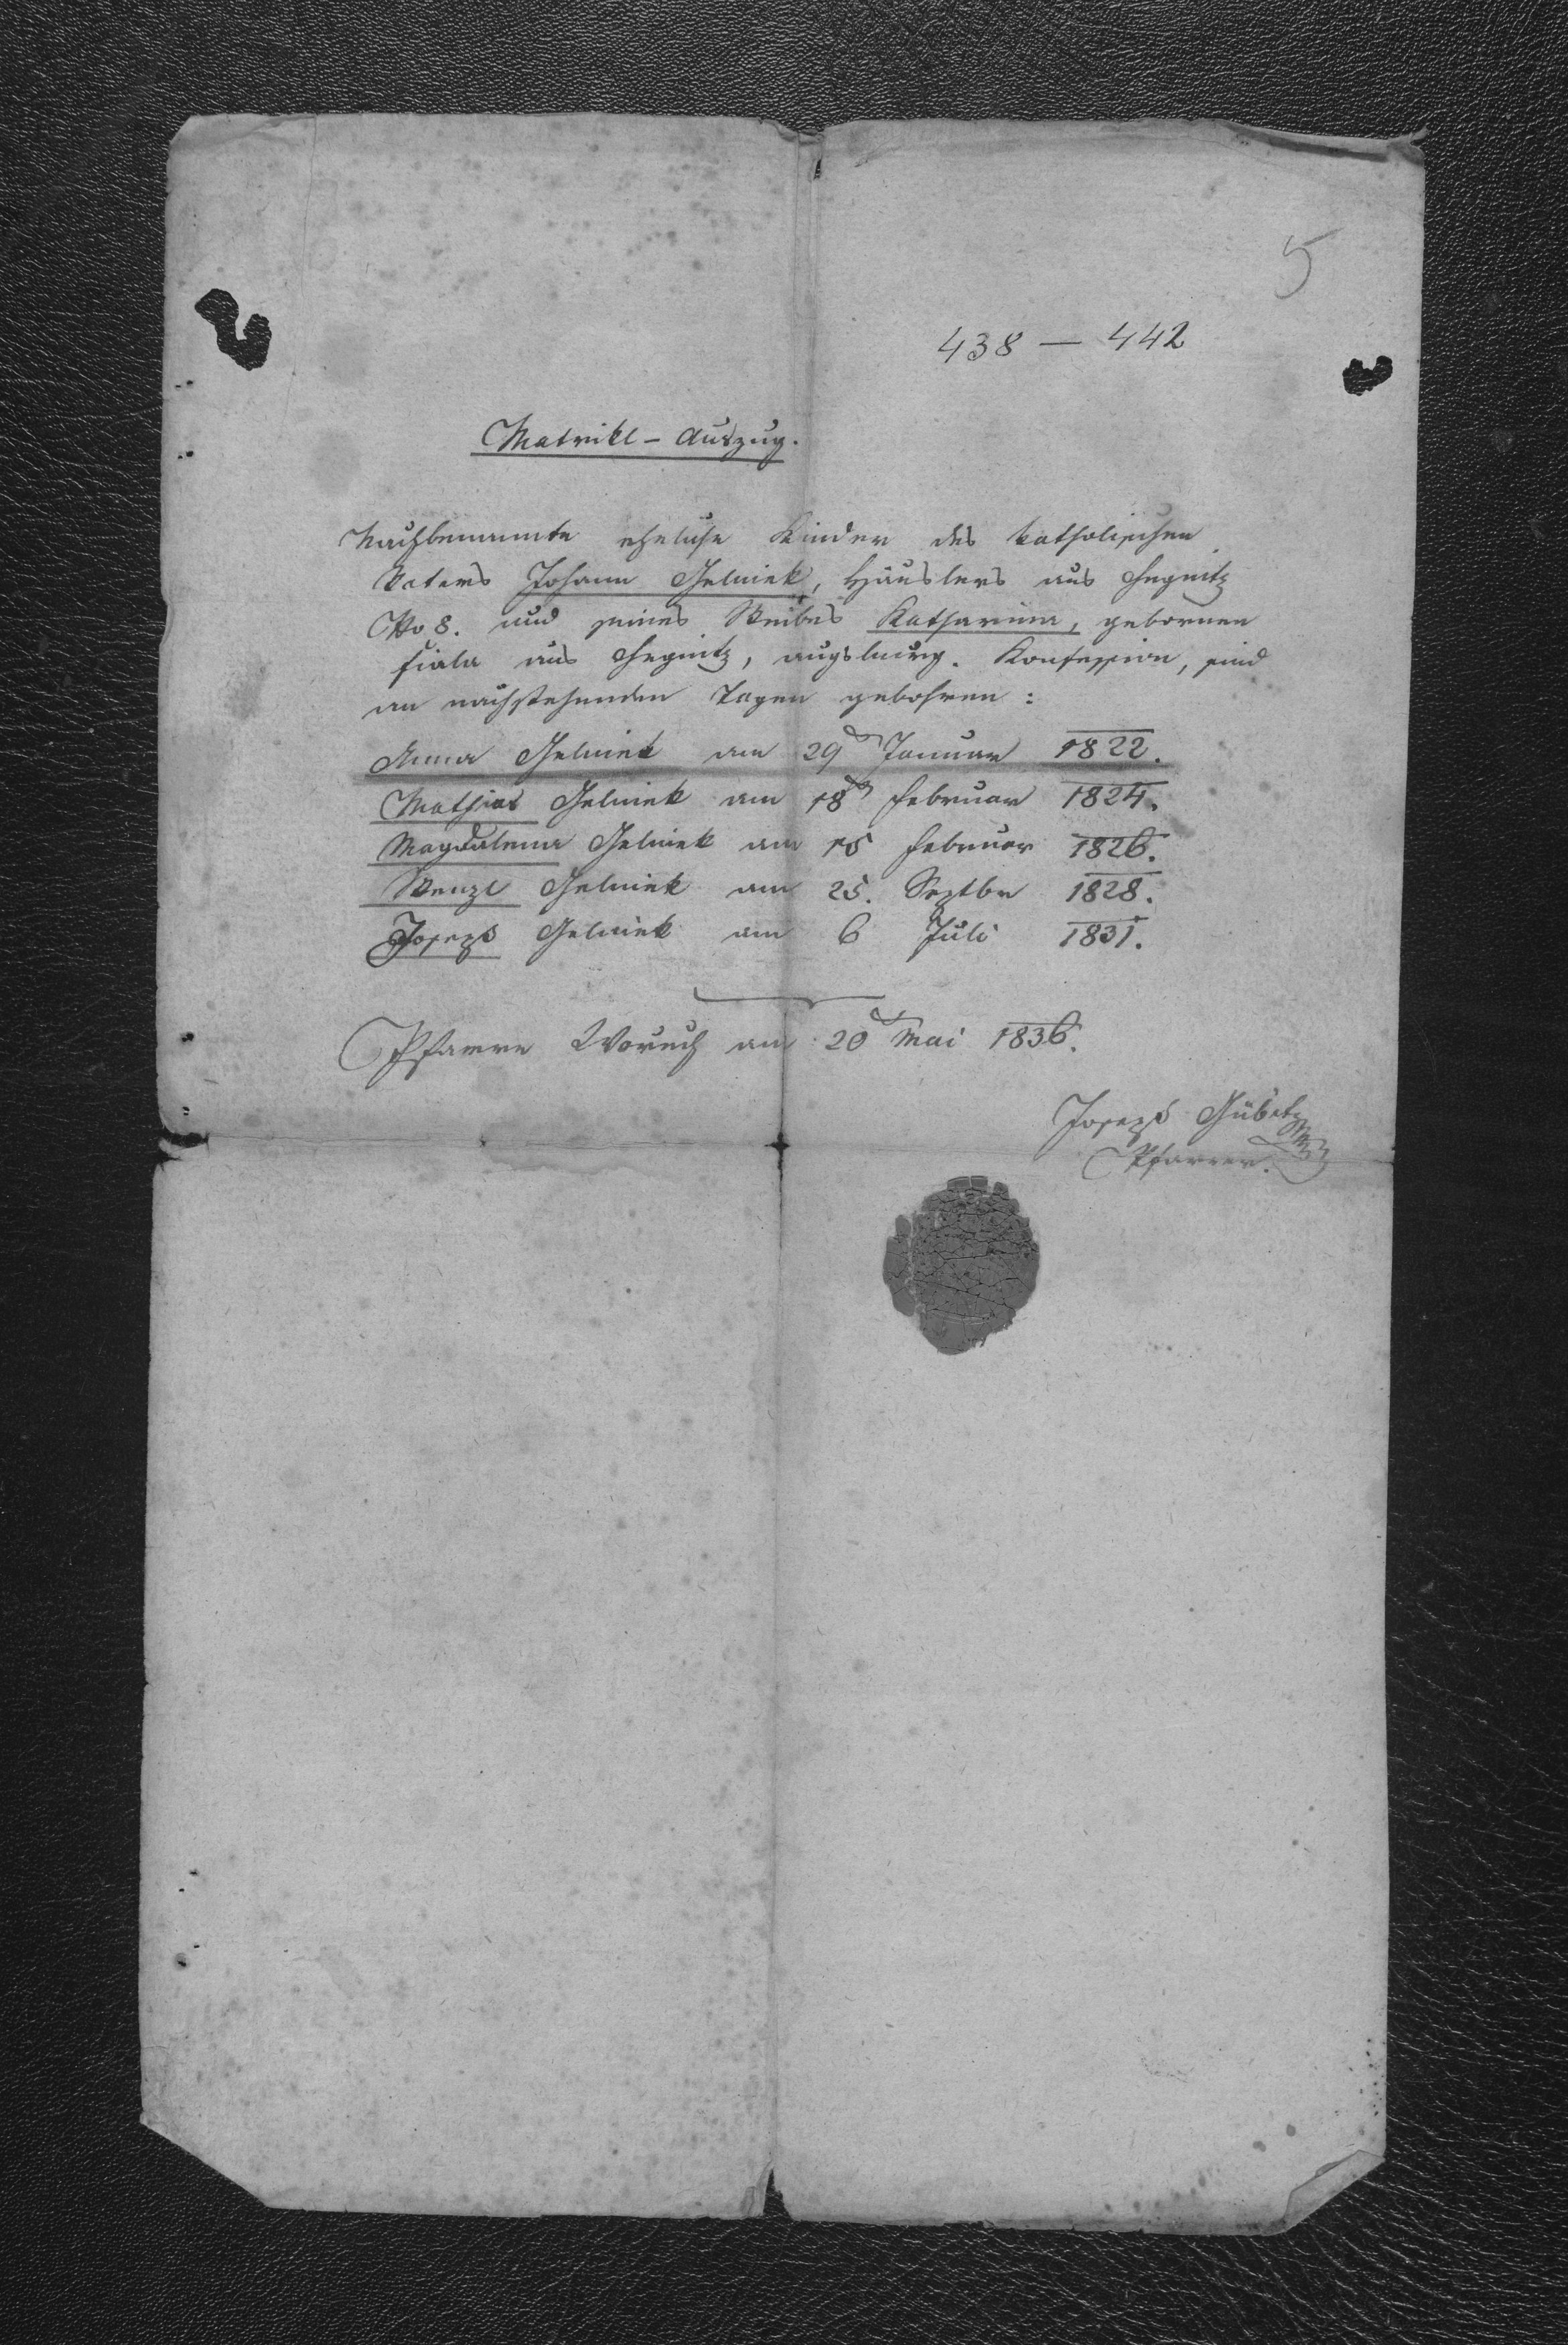 5
438 — 442
Matrikl-Auszug.
Nachbenannte eheliche Kinder des katholischen
Vaters Johann Jelinek, Häuslers aus
No 8. und seines Weibes Katharina, gebornen
Fiala aus augsburg. Konfession, sind
an nachstehenden Tagen gebohren:
Anna Jelinek am 29 Januar 1822.
Mathias Jelinek am 18 Februar 1824.
Magdalena Jelinek am 15 Februar 1826.
Wenzl Jelinek am 25. Septbr 1828.
Joseph Jelinek am 6 Juli 1831.
Pfarre am 20 Mai 1836.
Joseph
Pfarrer.